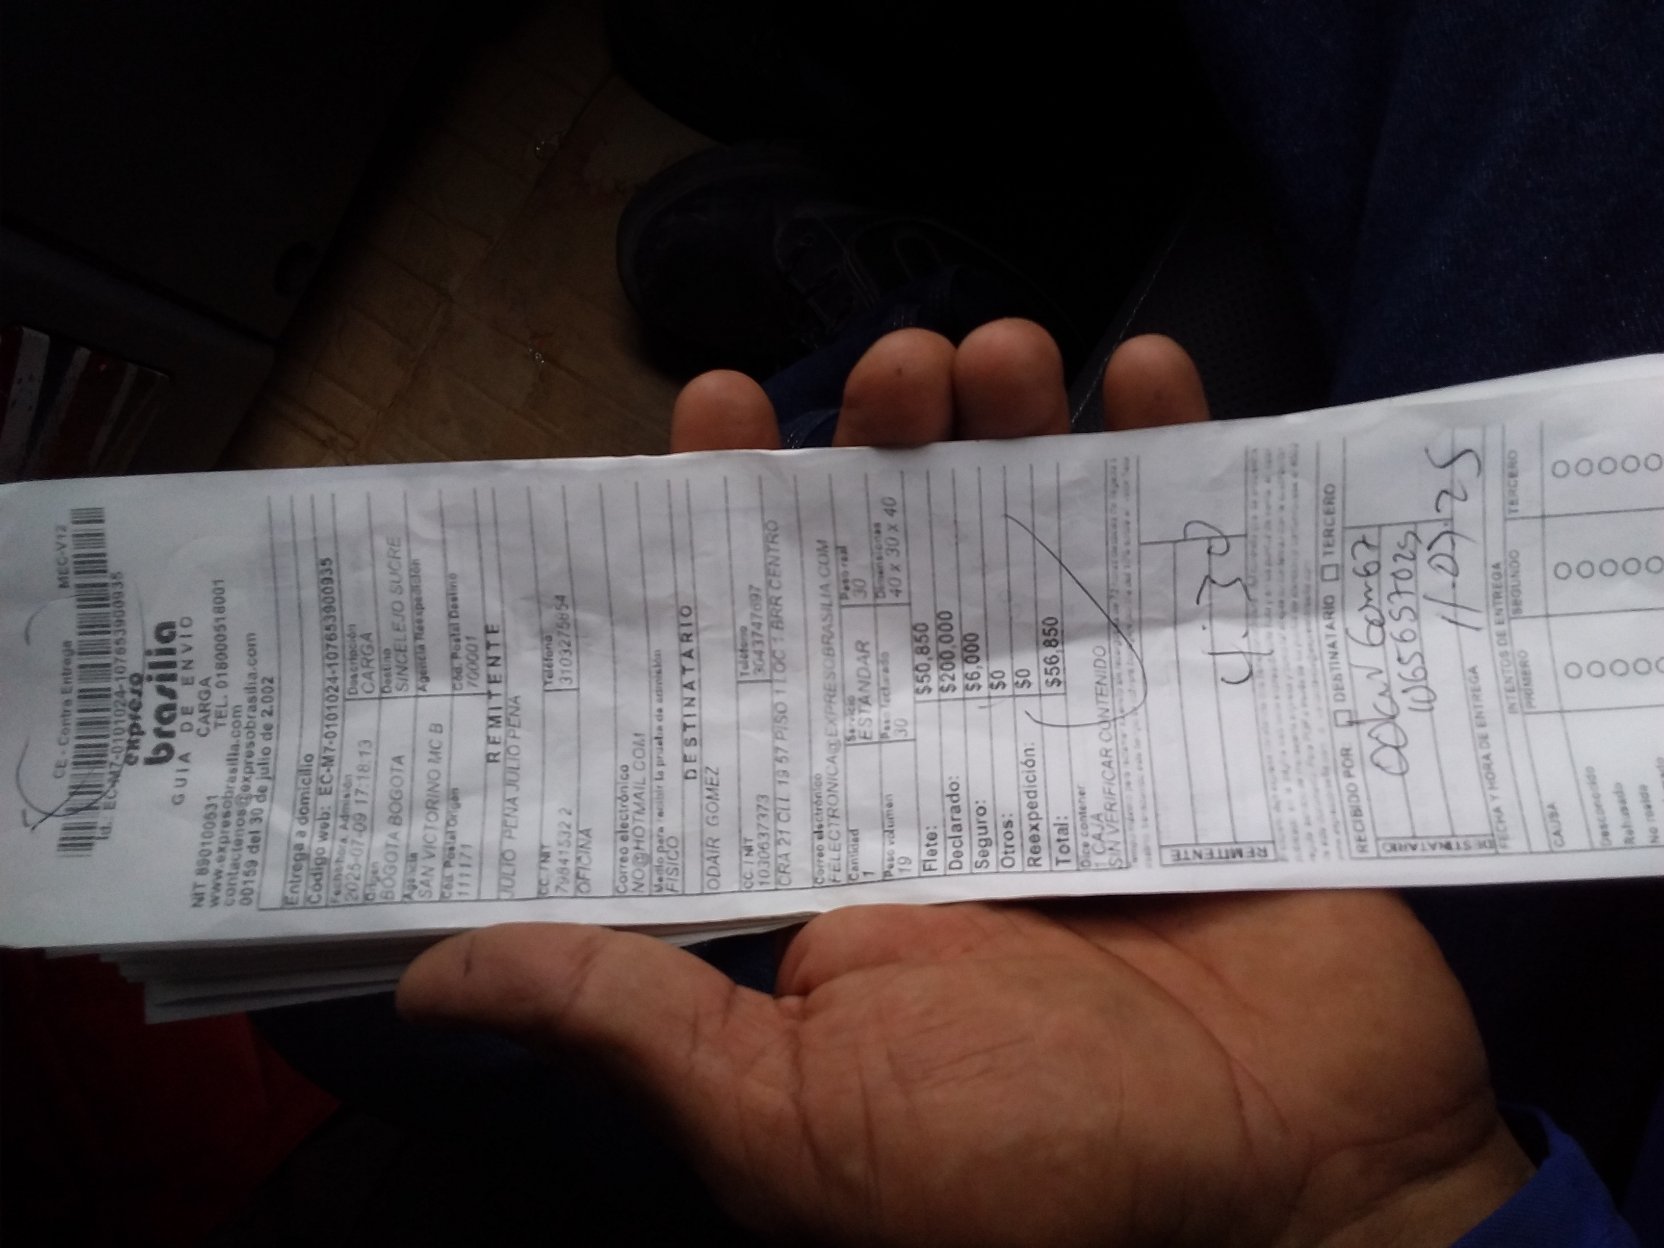 CE - Contra Entrega MEC-V12
Id.: EC-M7-0101024-107653900935
expreso
brasilia
GUIA DE ENVIO
CARGA
NIT 890100531 TEL. 018000518001
www.expresobrasilia.com
contactenos@expresobrasilia.com
00159 del 30 de julio de 2.002
Entrega a domicilio
Código web: EC-M7-0101024-107653900935
Fecha/hora Admisión Descripción
2025-07-09 17:18:13 CARGA
Origen Destino
BOGOTA BOGOTA SINCELEJO SUCRE
Agencia Agencia Reexpedición
SAN VICTORINO MC B
Cód. Postal Origen Cód. Postal Destino
111171 700001
REMITENTE
JULIO PENA JULIO PENA
CC / NIT Teléfono
79841532 2 3103275854
OFICINA
Correo electrónico
NO@HOTMAIL.COM
Medio para recibir la prueba de admisión
FISICO
DESTINATARIO
ODAIR GOMEZ
CC / NIT Teléfono
1030637373 3043747697
CRA 21 CLL 19 57 PISO 1 LOC 1 BRR CENTRO
Correo electrónico
FELECTRONICA@EXPRESOBRASILIA.COM
Cantidad Servicio Peso real
1 ESTÁNDAR 30
Peso volumen Pes. facturado Dimensiones
19 30 40 x 30 x 40
Flete: $50,850
Declarado: $200,000
Seguro: $6,000
Otros: $0
Reexpedición: $0
Total: $56,850
Dice contener
1 CAJA
SIN VERIFICAR CONTENIDO
REMITENTE
4:30
RECIBIDO POR DESTINATARIO TERCERO
DESTINATARIO
11-07-25
FECHA Y HORA DE ENTREGA
INTENTOS DE ENTREGA
CAUSA PRIMERO SEGUNDO TERCERO
Desconocido
Rehusado
No reside